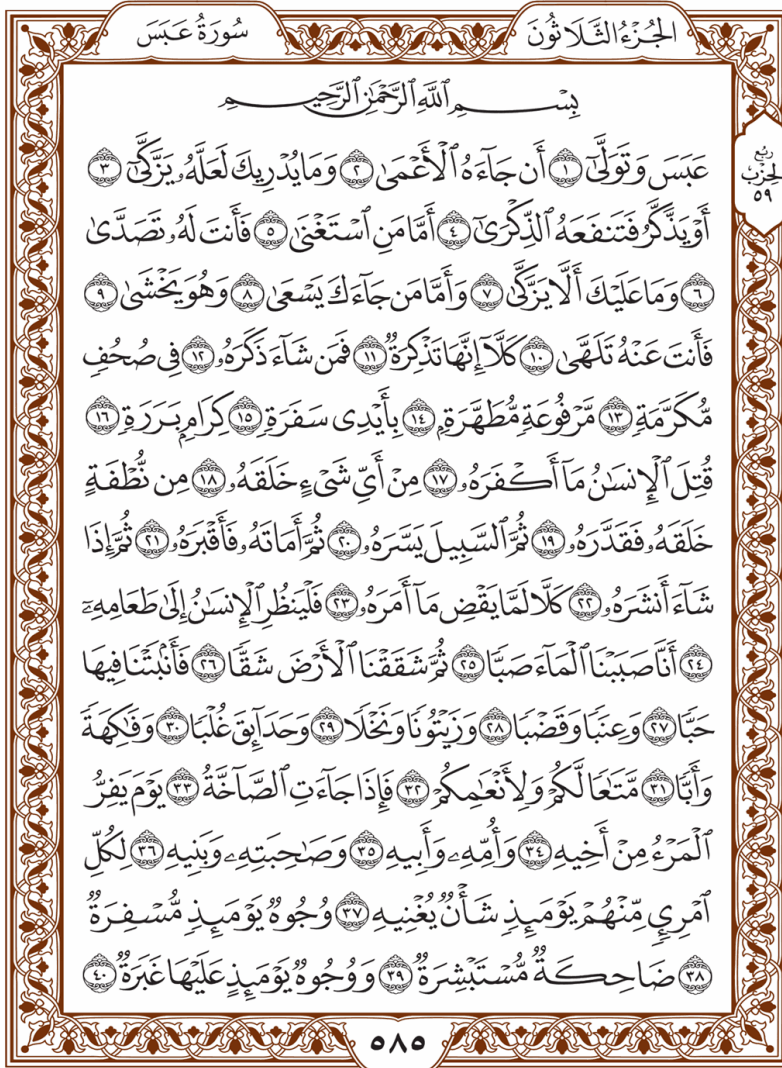 الجُزْءُ الثَّلَاثُونَ
سُورَةُ عَبَسَ
بِسْمِ ٱللَّهِ ٱلرَّحْمَٰنِ ٱلرَّحِيمِ
عَبَسَ وَتَوَلَّىٰٓ ١ أَن جَآءَهُ ٱلْأَعْمَىٰ ٢ وَمَا يُدْرِيكَ لَعَلَّهُۥ يَزَّكَّىٰٓ ٣
أَوْ يَذَّكَّرُ فَتَنفَعَهُ ٱلذِّكْرَىٰٓ ٤ أَمَّا مَنِ ٱسْتَغْنَىٰ ٥ فَأَنتَ لَهُۥ تَصَدَّىٰ
٦ وَمَا عَلَيْكَ أَلَّا يَزَّكَّىٰ ٧ وَأَمَّا مَن جَآءَكَ يَسْعَىٰ ٨ وَهُوَ يَخْشَىٰ ٩
فَأَنتَ عَنْهُ تَلَهَّىٰ ١٠ كَلَّآ إِنَّهَا تَذْكِرَةٌ ١١ فَمَن شَآءَ ذَكَرَهُۥ ١٢ فِى صُحُفٍ
مُّكَرَّمَةٍ ١٣ مَّرْفُوعَةٍ مُّطَهَّرَةٍۭ ١٤ بِأَيْدِى سَفَرَةٍ ١٥ كِرَامٍۭ بَرَرَةٍ ١٦
قُتِلَ ٱلْإِنسَٰنُ مَآ أَكْفَرَهُۥ ١٧ مِنْ أَىِّ شَىْءٍ خَلَقَهُۥ ١٨ مِن نُّطْفَةٍ
خَلَقَهُۥ فَقَدَّرَهُۥ ١٩ ثُمَّ ٱلسَّبِيلَ يَسَّرَهُۥ ٢٠ ثُمَّ أَمَاتَهُۥ فَأَقْبَرَهُۥ ٢١ ثُمَّ إِذَا
شَآءَ أَنشَرَهُۥ ٢٢ كَلَّا لَمَّا يَقْضِ مَآ أَمَرَهُۥ ٢٣ فَلْيَنظُرِ ٱلْإِنسَٰنُ إِلَىٰ طَعَامِهِۦٓ
٢٤ أَنَّا صَبَبْنَا ٱلْمَآءَ صَبًّا ٢٥ ثُمَّ شَقَقْنَا ٱلْأَرْضَ شَقًّا ٢٦ فَأَنۢبَتْنَا فِيهَا
حَبًّا ٢٧ وَعِنَبًا وَقَضْبًا ٢٨ وَزَيْتُونًا وَنَخْلًا ٢٩ وَحَدَآئِقَ غُلْبًا ٣٠ وَفَٰكِهَةً
وَأَبًّا ٣١ مَّتَٰعًا لَّكُمْ وَلِأَنْعَٰمِكُمْ ٣٢ فَإِذَا جَآءَتِ ٱلصَّآخَّةُ ٣٣ يَوْمَ يَفِرُّ
ٱلْمَرْءُ مِنْ أَخِيهِ ٣٤ وَأُمِّهِۦ وَأَبِيهِ ٣٥ وَصَٰحِبَتِهِۦ وَبَنِيهِ ٣٦ لِكُلِّ
ٱمْرِئٍ مِّنْهُمْ يَوْمَئِذٍ شَأْنٌ يُغْنِيهِ ٣٧ وُجُوهٌ يَوْمَئِذٍ مُّسْفِرَةٌ
٣٨ ضَاحِكَةٌ مُّسْتَبْشِرَةٌ ٣٩ وَوُجُوهٌ يَوْمَئِذٍ عَلَيْهَا غَبَرَةٌ ٤٠
رُبْع
الحِزْب
٥٩
٥٨٥